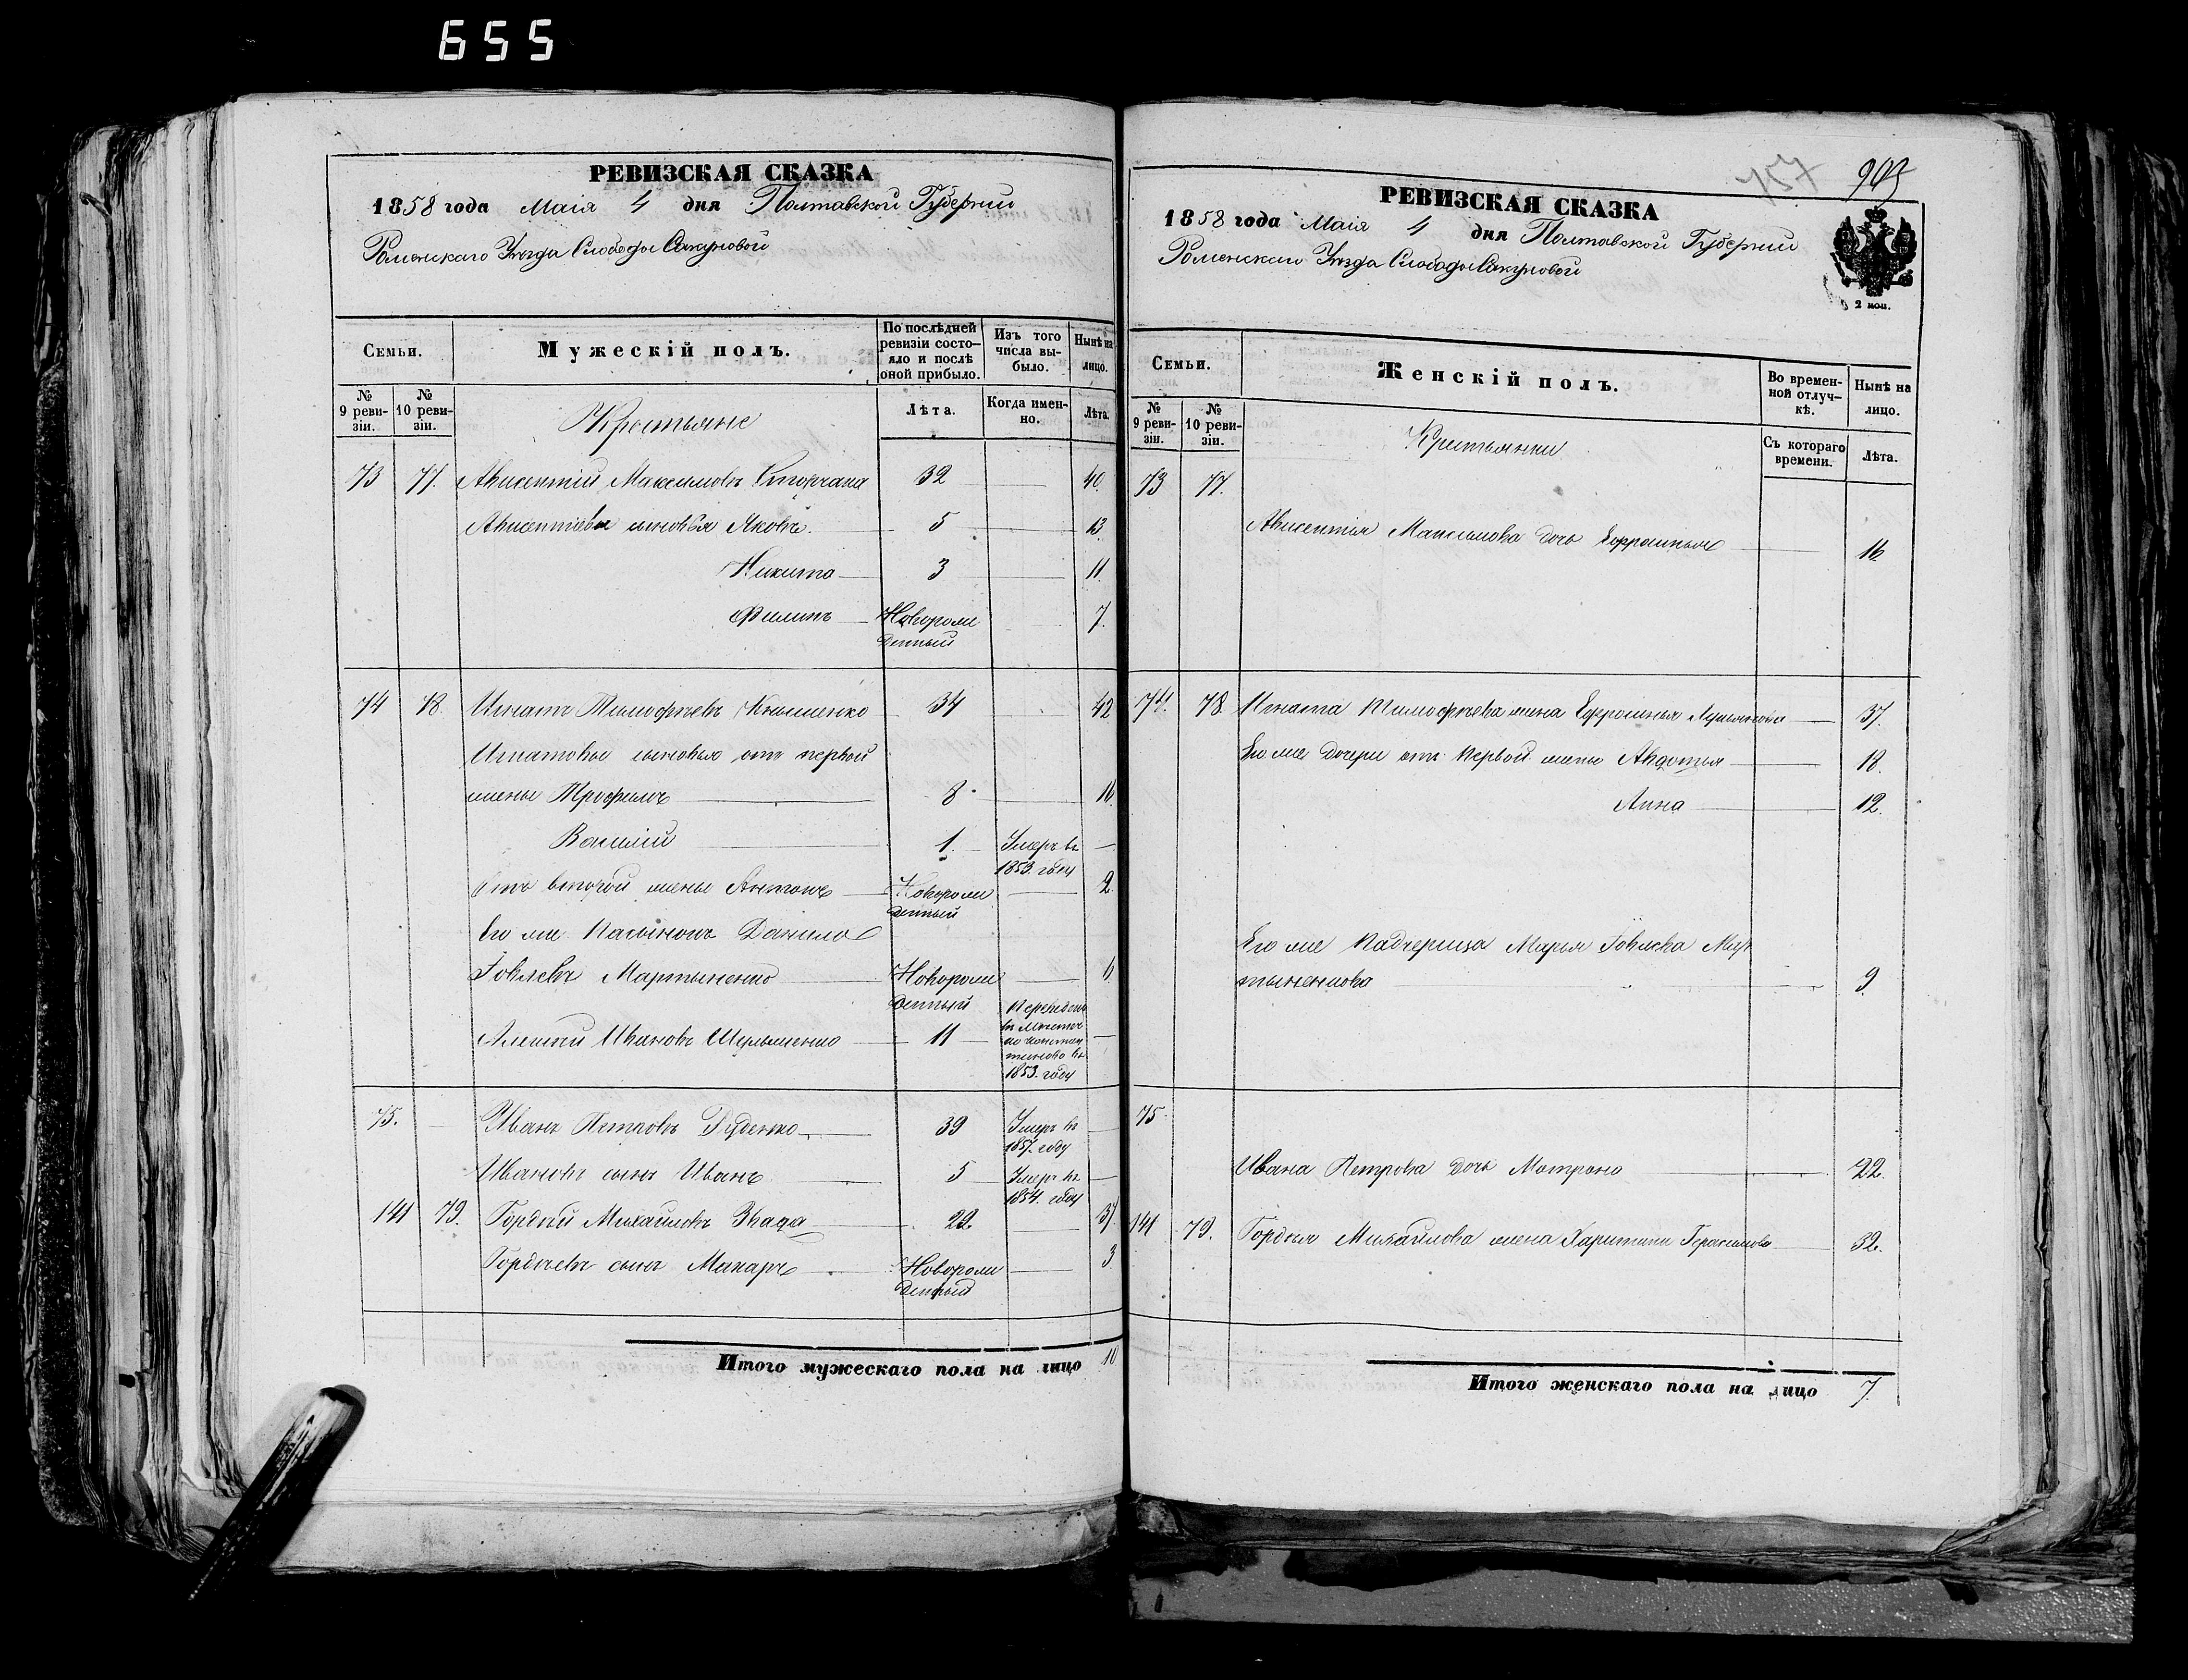 655
РЕВИЗСКАЯ СКАЗКА
1858 года Маія 4 дня Полтавской Губерніи
Роменскаго Уѣзда Слободы Сакуновой
Семьи.
Мужескій полъ.
По послѣдней ревизіи состояло и послѣ оной прибыло.
Изъ того числа выбыло.
Нынѣ на лицо.
№ 9 ревизіи.
№ 10 ревизіи.
Крестьяне
Лѣта.
Когда именно.
Лѣта.
73 77. Авксентій Максимовъ 32 40.
Авксентіевы сыновья Яковъ 5 13
Никита 3 11.
Филипъ Новорожденный 7.
74 78. Игнатъ Тимофѣевъ 34 42
Игнатовы сыновья отъ первой
жены Трофимъ 8 16
Василій 1. Умеръ въ 1853. году
Отъ второй жены Антонъ Новорожденный 2.
Его же пасынокъ Данило
Іовлевъ Мартыненко Новорожденный 6
Алексѣй Ивановъ 11 Переведенъ въ 1853. году
75. Иванъ Петровъ Руденко 39 Умеръ въ 1857. году
Ивановъ сынъ Иванъ 5 Умеръ въ 1854. году
141 79. Гордѣй Михайловъ 29. 37
Гордѣевъ сынъ Макаръ Новорожденный 3
Итого мужескаго пола на лицо 10
757
903
РЕВИЗСКАЯ СКАЗКА
1858 года Маія 4 дня Полтавской Губерніи
Роменскаго Уѣзда Слободы Сакуновой
2 коп.
Семьи.
Женскій полъ.
Во временной отлучкѣ.
Нынѣ на лицо.
№ 9 ревизіи.
№ 10 ревизіи.
Крестьянки
Съ котораго времени.
Лѣта.
73 77.
Авксентія Максимова дочь Ефросинья 16
74. 78. Игната Тимофѣева жена Ефросинья 37.
Его же дочери отъ первой жены Авдотья 18.
Анна 12.
Его же падчерица Марья Іовлева Мар
тыненкова 9.
75
Ивана Петрова дочь Мотрона 22.
141 79. Гордѣя Михайлова жена Харитина Герасимова 32.
Итого женскаго пола на лицо 7.